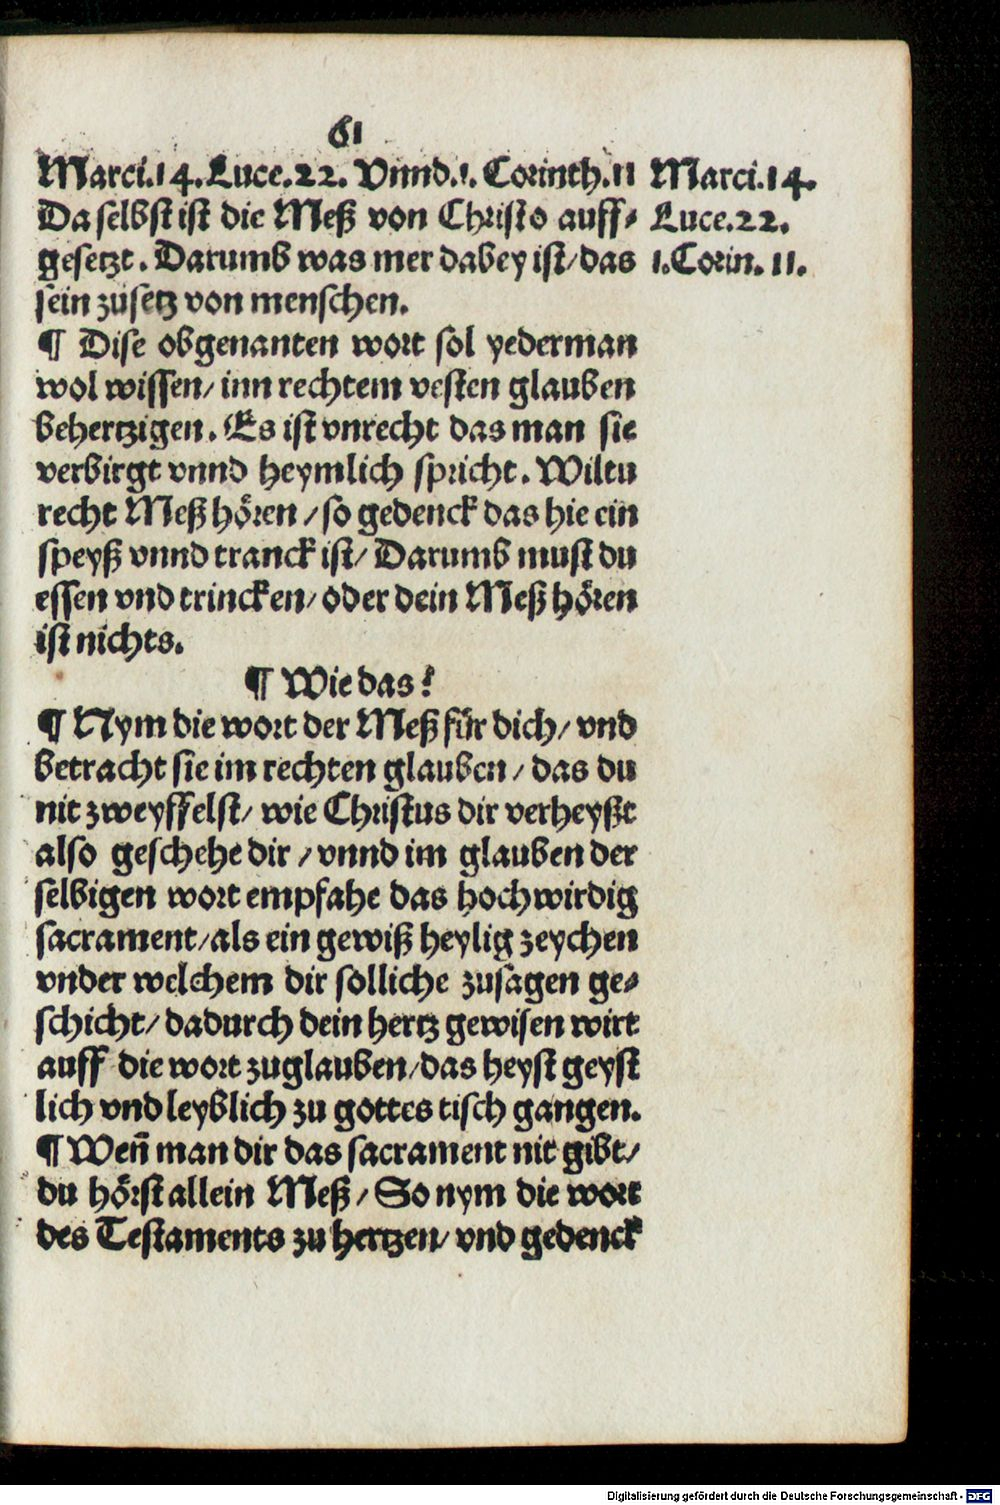 61
Marci.14.Luce.22. Vnnd.1. Corinth.11
Da selbst ist die Meß von Christo auff⸗
gesetzt. Darumb was mer dabey ist/das
sein zusetz von menschen.
¶ Dise obgenanten wort sol yederman
wol wissen/ inn rechtem vesten glauben
behertzigen. Es ist vnrecht das man sie
verbirgt vnnd heymlich spricht. Wiltu
recht Meß hören /so gedenck das hie ein
speyß vnnd tranck ist/ Darumb must du
essen vnd trincken/ oder dein Meß hören
ist nichts.
¶ Wie das?
¶ Nym die wort der Meß für dich/ vnd
betracht sie im rechten glauben / das du
nit zweyffelst/ wie Christus dir verheyßt
also geschehe dir / vnnd im glauben der
selbigen wort empfahe das hochwirdig
sacrament/als ein gewiß heylig zeychen
vnder welchem dir solliche zusagen ge⸗
schicht/ dadurch dein hertz gewisen wirt
auff die wort zuglauben/das heyst geyst
lich vnd leyblich zu gottes tisch gangen.
¶ Weñ man dir das sacrament nit gibt/
du hörst allein Meß / So nym die wort
des Testaments zu hertzen/ vnd gedenck
Marci.14.
Luce.22.
1.Corin. 11.
Digitalisierung gefördert durch die Deutsche Forschungsgemeinschaft - DFG